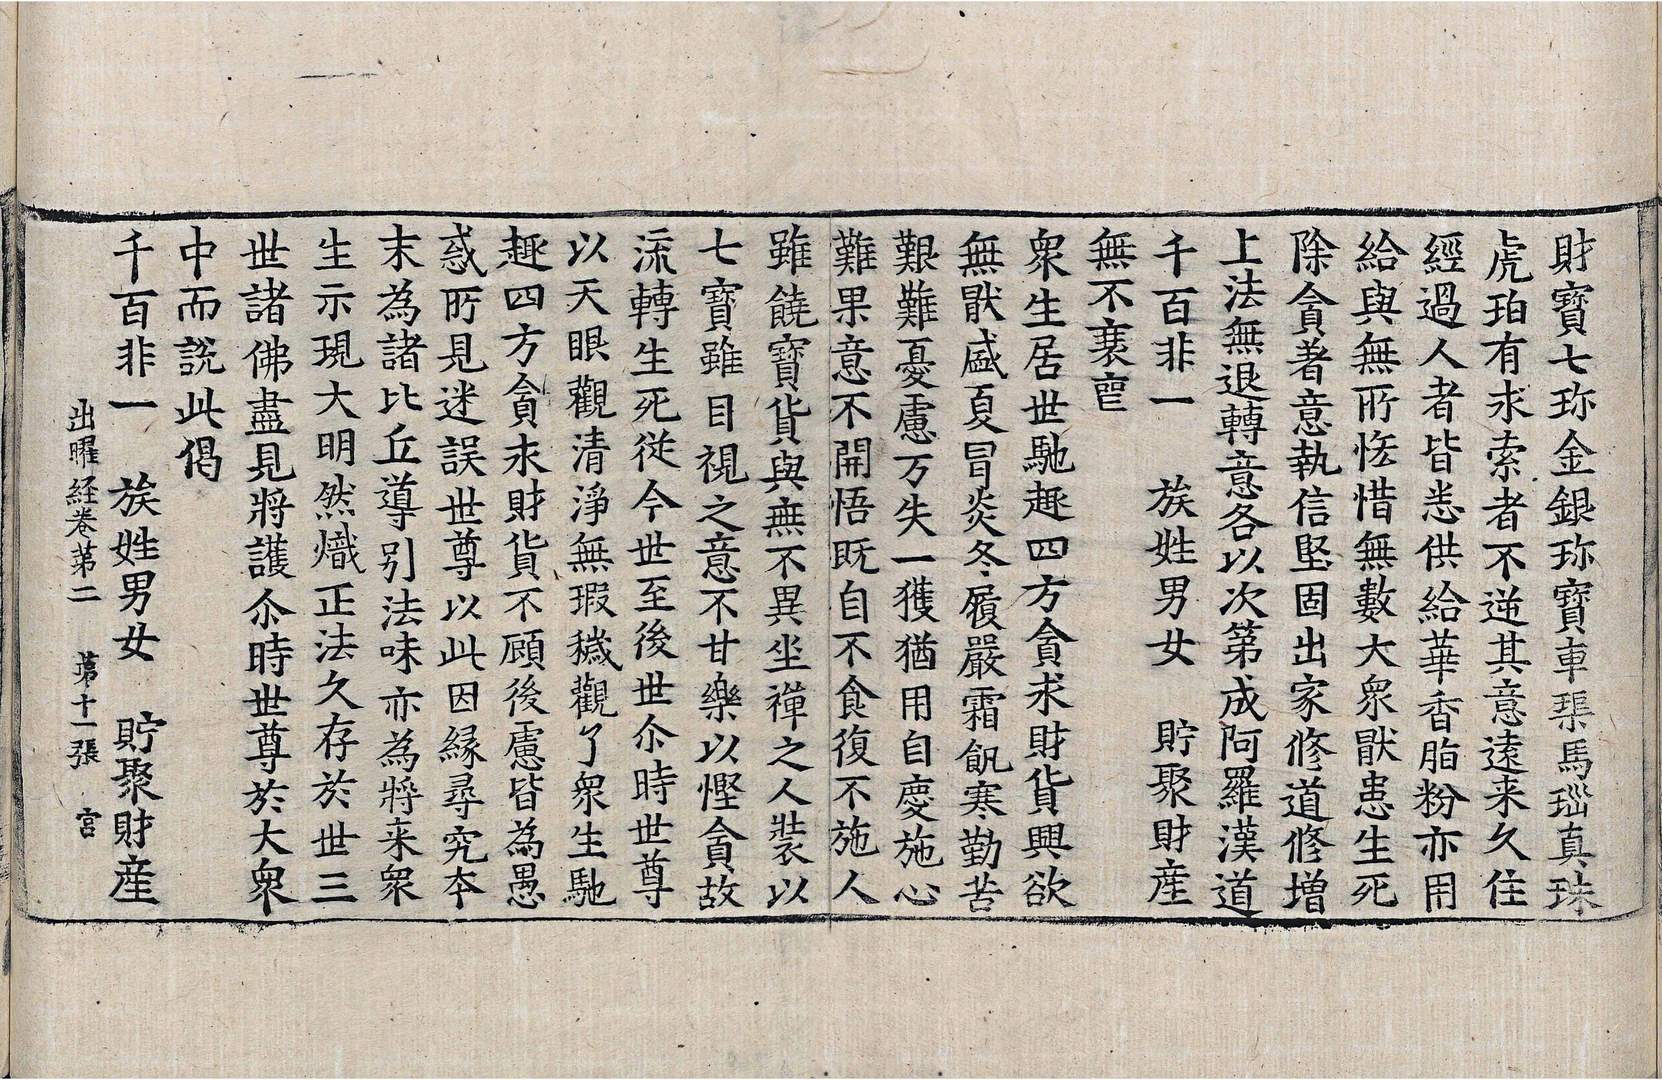 財寶七珎金銀珎寶車𤦲馬瑙真珠
虎珀有求索者不逆其意遠来久住
經過人者皆悉供給華香脂粉亦用
給與無所恡惜無數大衆猒患生死
除貪著意執信堅固出家修道修增
上法無退轉意各以次第成阿羅漢道
千百非一　族姓男女　貯聚財産
無不衰喪
衆生居世馳趣四方貪求財貨興欲
無猒盛夏冒炎冬履嚴霜飢寒勤苦
艱難憂慮万失一獲猶用自慶施心
難果意不開悟既自不食復不施人
雖饒寶貨與無不異坐禪之人裝以
七寶雖目視之意不甘樂以慳貪故
流轉生死從今世至後世尒時世尊
以天眼觀清淨無瑕穢觀了衆生馳
趣四方貪求財貨不顧後慮皆為愚
惑所見迷誤世尊以此因縁尋究本
末為諸比丘導引法味亦為將来衆
生示現大明然熾正法久存於世三
世諸佛盡見將護尒時世尊於大衆
中而說此偈
千百非一　族姓男女　貯聚財産
出曜経卷第二　第十一張　宮